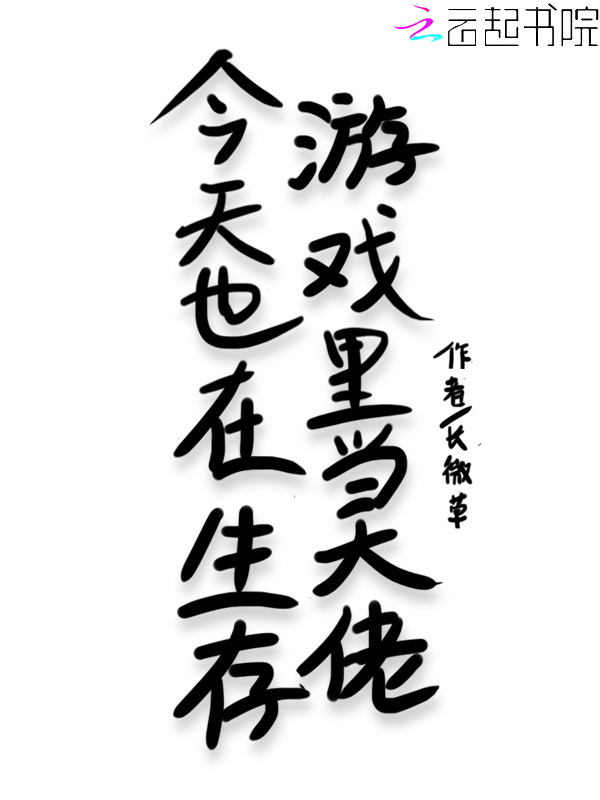 云起书院
今天也在生存
游戏里当大佬
作者/长微草